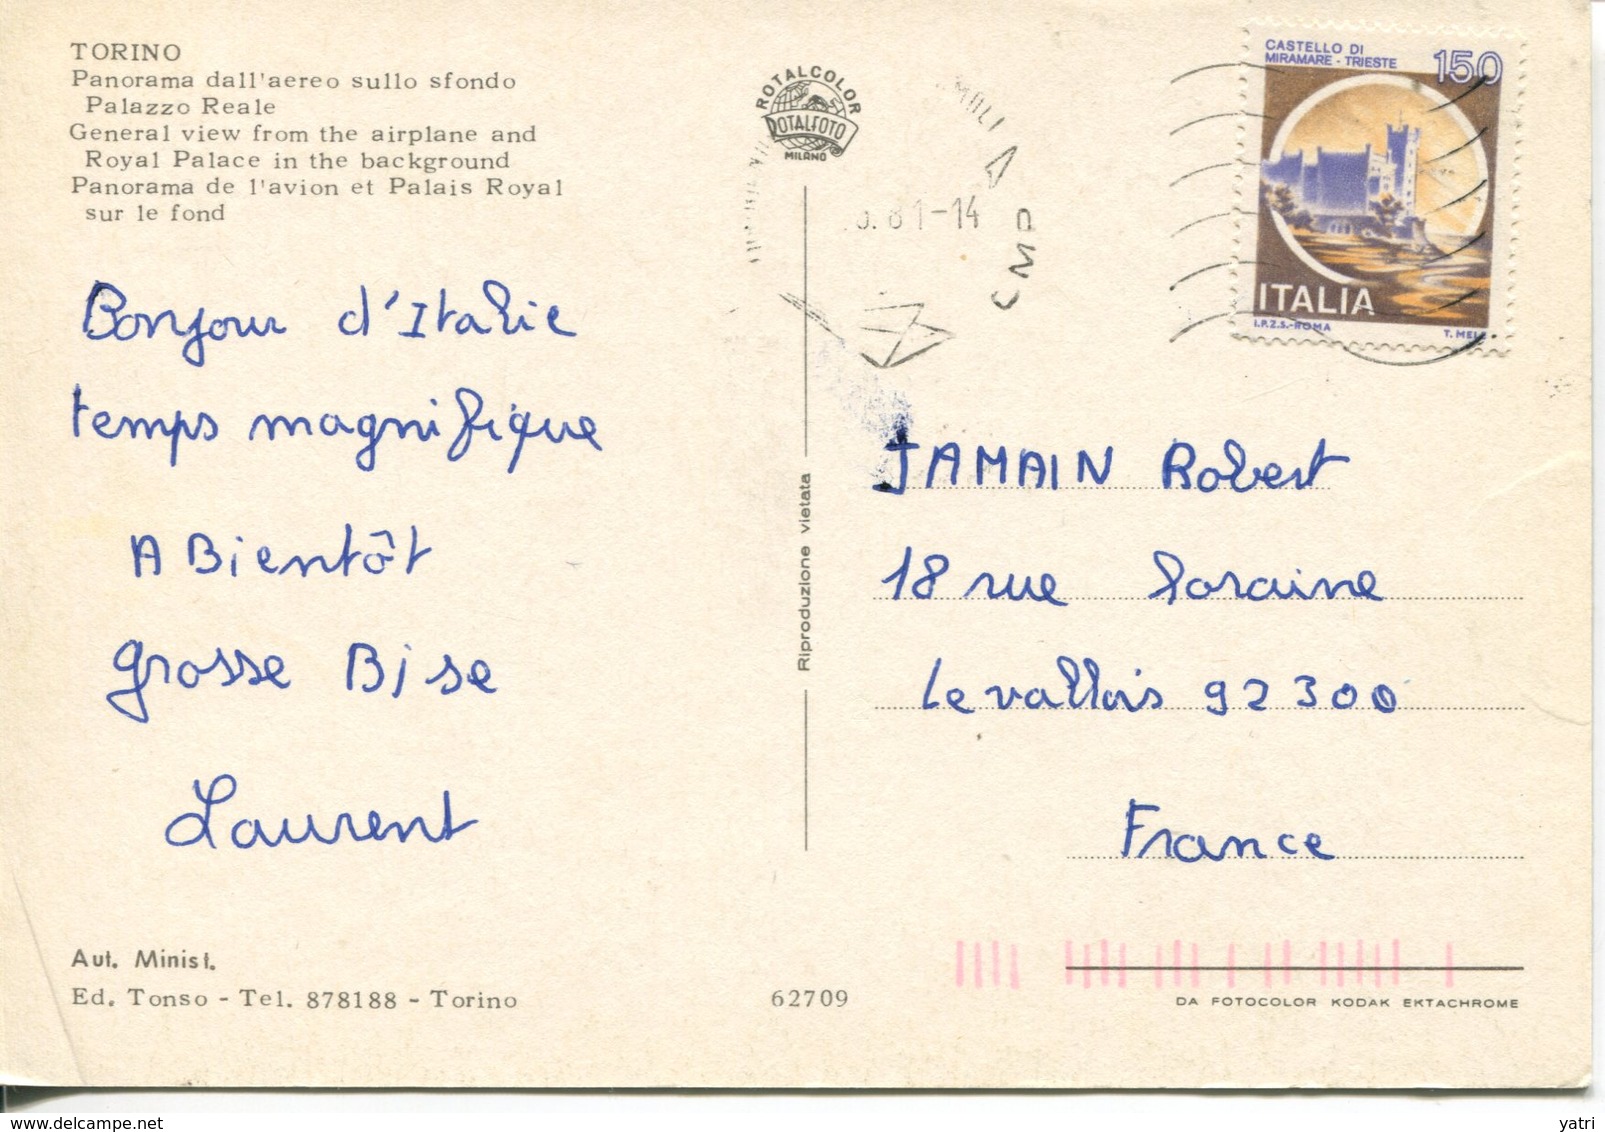 TORINO
Panorama dall'aereo sullo sfondo
Palazzo Reale
General view from the airplane and
Royal Palace in the background
Panorama de l'avion et Palais Royal
sur le fond
Bonjour d'Italie
temps magnifique
A Bientôt
grosse Bise
Laurent
Aut. Minist.
Ed. Tonso - Tel. 878188 - Torino
62709
ROTALCOLOR
ROTALFOTO
MILANO
Riproduzione vietata
81-14
CMP
CASTELLO DI
MIRAMARE - TRIESTE
150
ITALIA
I.P.Z.S.-ROMA T. MELE
JAMAIN Robert
18 rue loraine
Levallois 92300
France
DA FOTOCOLOR KODAK EKTACHROME
yatri